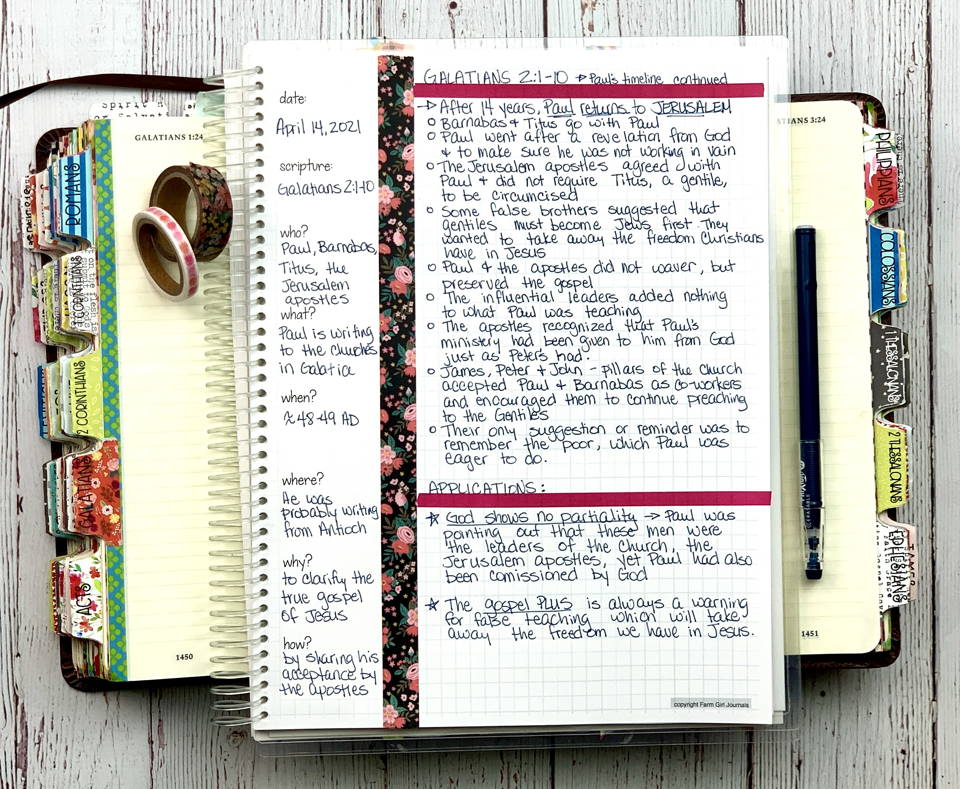 GALATIANS 1:24
ROMANS
1 CORINTHIANS
2 CORINTHIANS
GALATIANS
ACTS
1450
date:
April 14, 2021
scripture:
Galatians 2:1-10
who?
Paul, Barnabas,
Titus, the
Jerusalem
apostles
what?
Paul is writing
to the churches
in Galatia
when?
≈ 48-49 AD
where?
He was
probably writing
from Antioch
why?
to clarify the
true gospel
of Jesus
how?
by sharing his
acceptance by
the apostles
GALATIANS 2:1-10 → Paul's timeline continued
→ After 14 years, Paul returns to JERUSALEM
○ Barnabas + Titus go with Paul
○ Paul went after a revelation from God
+ to make sure he was not working in vain
○ The Jerusalem apostles agreed with
Paul + did not require Titus, a gentile,
to be circumcised
○ Some false brothers suggested that
gentiles must become Jews first. They
wanted to take away the freedom Christians
have in Jesus
○ Paul & the apostles did not waver, but
preserved the gospel
○ The influential leaders added nothing
to what Paul was teaching
○ The apostles recognized that Paul's
ministry had been given to him from God
just as Peter's had.
○ James, Peter + John - pillars of the church
accepted Paul + Barnabas as co-workers
and encouraged them to continue preaching
to the Gentiles
○ Their only suggestion or reminder was to
remember the poor, which Paul was
eager to do.
APPLICATIONS:
☆ God shows no partiality → Paul was
pointing out that these men were
the leaders of the church, the
Jerusalem apostles, yet Paul had also
been comissioned by God
☆ The gospel PLUS is always a warning
for false teaching which will take
away the freedom we have in Jesus.
copyright Farm Girl Journals
3:24
PHILIPPIANS
COLOSSIANS
1 THESSALONIANS
2 THESSALONIANS
1451